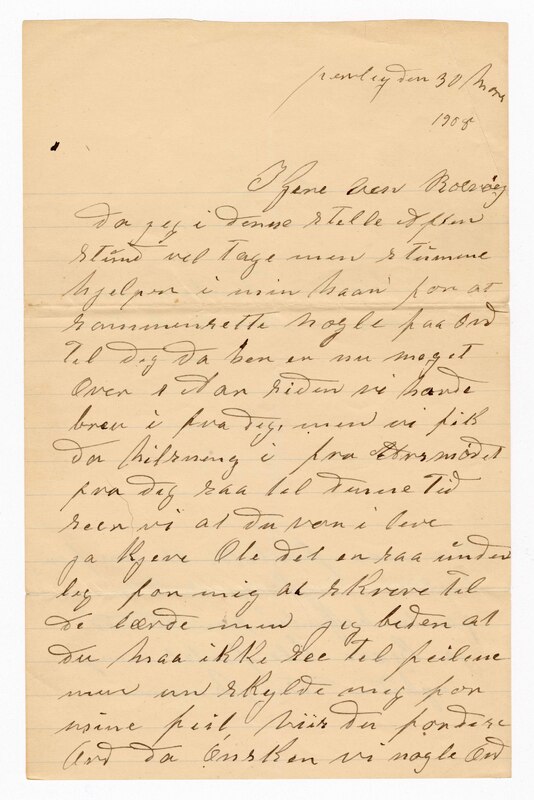 den 30 Mars
1908
Kjere ven Rolvög
da jeg i denne stelle Aften
stund vel tage men stumme
hjelper i min haan for at
sammensette nogle faa Ord
til dig da den er nu meget
Over 1 Aar siden vi hade
brev i fra dig, men vi fik
da hilsning i fra Aarsmödet
fra dig saa til denne Tid
seer vi at du var i leve
ja Kjere Ole det er saa under
leg for mig at skreve til
De lærde men jeg beder at
du maa ikke see til feilene
men un skylde mig for
mine feil viis du forderse
Ord da Önsker vi nogle Ord